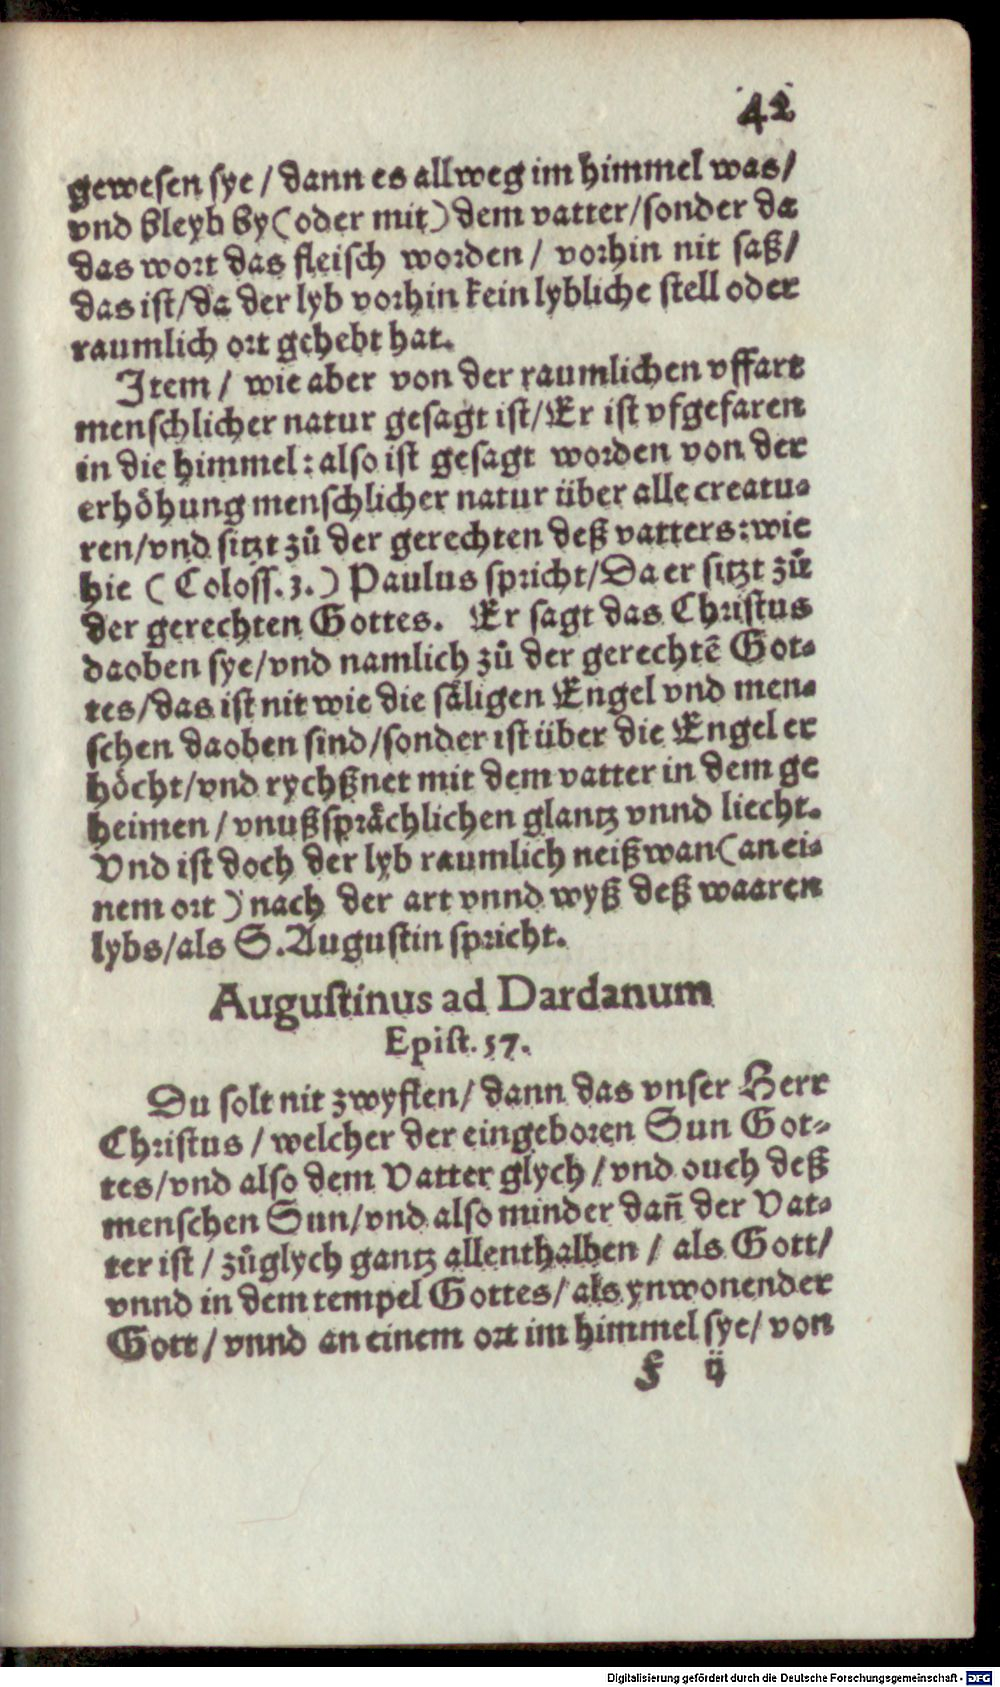 42
gewesen sye / dann es allweg im himmel was/
vnd bleyb by (oder mit) dem vatter/sonder da
das wort das fleisch worden / vorhin nit saß/
das ist/da der lyb vorhin kein lybliche stell oder
raumlich ort gehebt hat.
Item / wie aber von der raumlichen vffart
menschlicher natur gesagt ist/Er ist vfgefaren
in die himmel: also ist gesagt worden von der
erhöhung menschlicher natur über alle creatu-
ren/vnd sitzt zů der gerechten deß vatters: wie
hie ( Coloss. 3. ) Paulus spricht/Da er sitzt zů
der gerechten Gottes. Er sagt das Christus
daoben sye/vnd namlich zů der gerechtē Got-
tes/das ist nit wie die säligen Engel vnd men-
schen daoben sind/sonder ist über die Engel er
höcht/vnd rychßnet mit dem vatter in dem ge
heimen / vnußsprächlichen glantz vnnd liecht.
Vnd ist doch der lyb raumlich neißwan (an ei-
nem ort ) nach der art vnnd wyß deß waaren
lybs/als S. Augustin spricht.
Augustinus ad Dardanum
Epist. 57.
Du solt nit zwyflen/ dann das vnser Herr
Christus / welcher der eingeboren Sun Got-
tes/vnd also dem Vatter glych / vnd ouch deß
menschen Sun/vnd also minder dañ der Vat-
ter ist / zůglych gantz allenthalben / als Gott/
vnnd in dem tempel Gottes/ als ynwonender
Gott / vnnd an einem ort im himmel sye/ von
f ij
Digitalisierung gefördert durch die Deutsche Forschungsgemeinschaft - DFG